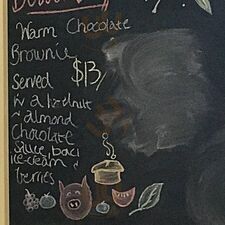 Warm Chocolate
Brownie
Served $13/
in a hazelnut
~ almond
Chocolate
sauce, baci
ice-cream &
berries